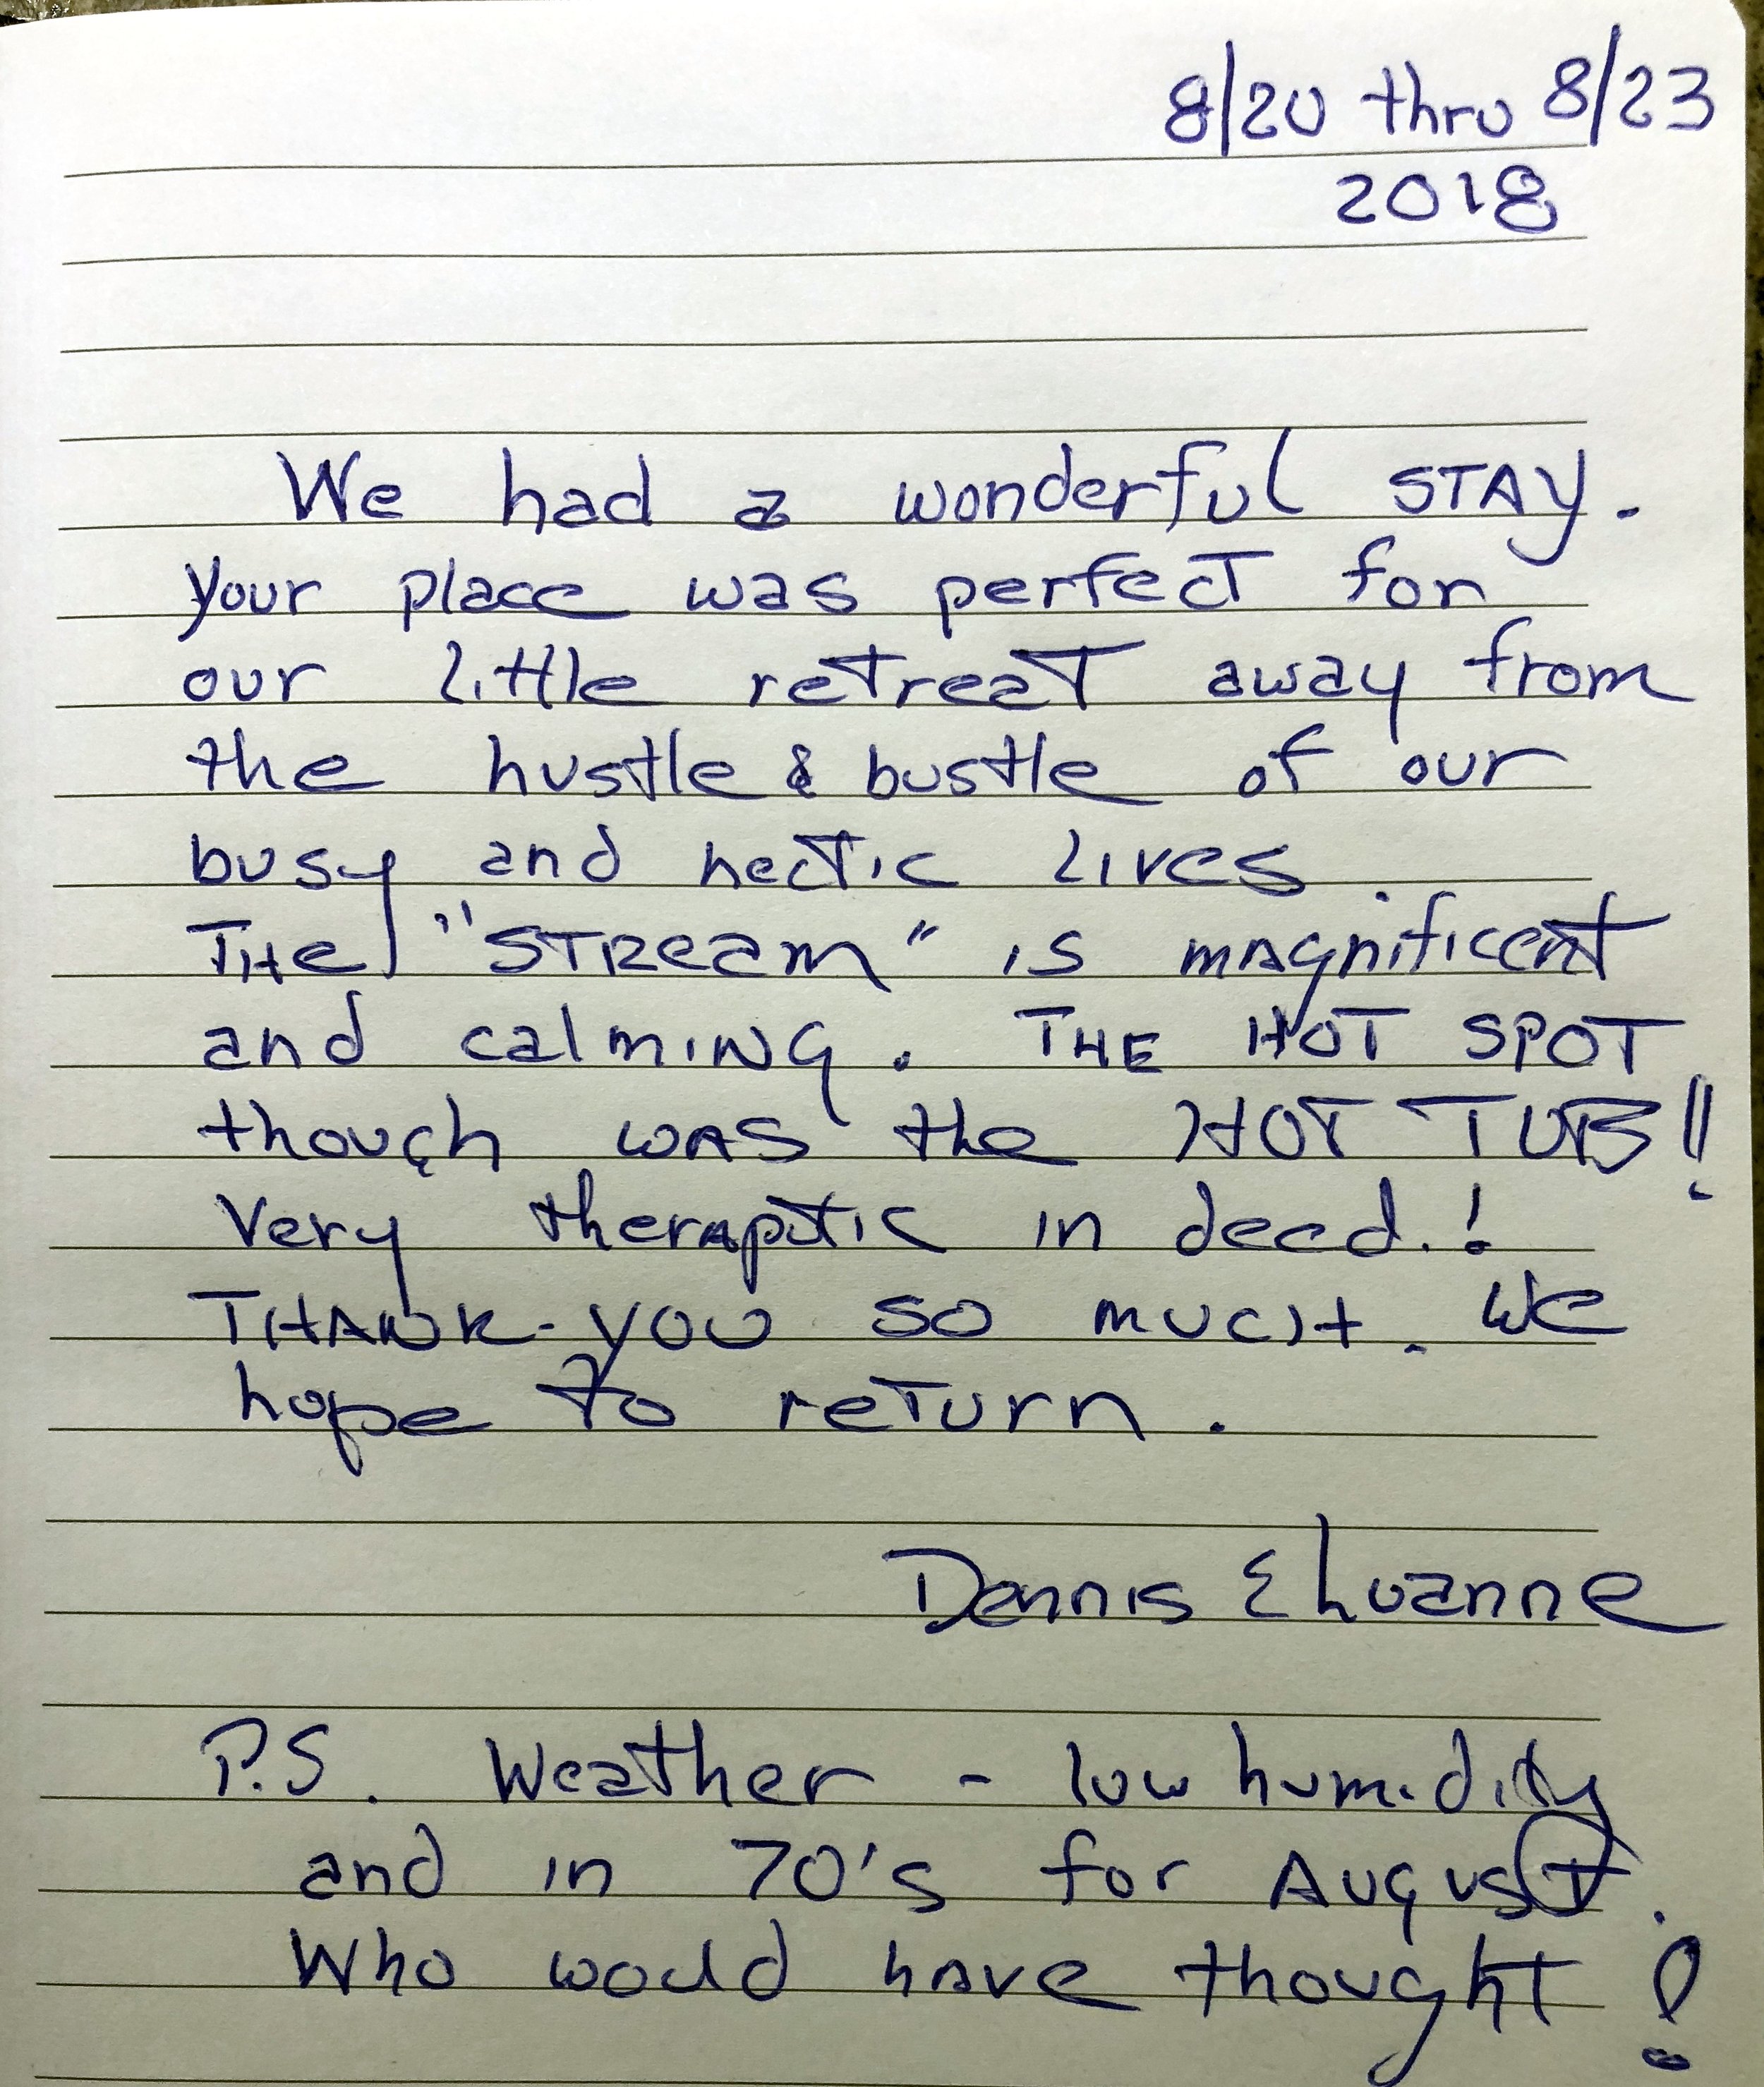 8/20 thru 8/23
2018
We had a wonderful STAY.
your place was perfect for
our little retreat away from
the hustle & bustle of our
busy and hectic lives.
THe "STReam" is magnificent
and calmING. THE HOT SPOT
though was the HOT TUB!!
Very theraputic in deed.!
THANK-YOU so MUCH. We
hope to reTurn.
Dennis & Luanne
P.S. Weather - low humidity
and in 70's for August.
Who would have thought!